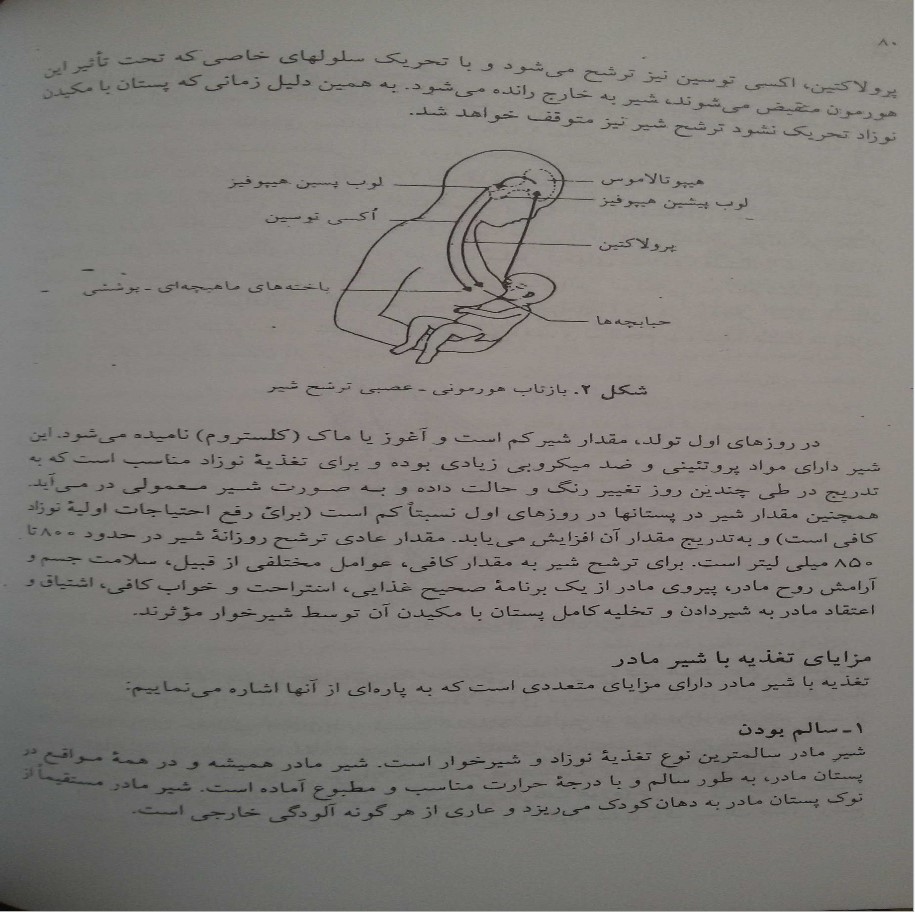 ۸۰
پرولاکتین، اکسی توسین نیز ترشح می‌شود و با تحریک سلولهای خاصی که تحت تأثیر این
هورمون منقبض می‌شوند، شیر به خارج رانده می‌شود. به همین دلیل زمانی که پستان با مکیدن
نوزاد تحریک نشود ترشح شیر نیز متوقف خواهد شد.
هیپوتالاموس
لوب پسین هیپوفیز
لوب پیشین هیپوفیز
اُکسی توسین
پرولاکتین
باخته‌های ماهیچه‌ای ـ پوششی
حبابچه‌ها
شکل ۲. بازتاب هورمونی ـ عصبی ترشح شیر
در روزهای اول تولد، مقدار شیر کم است و آغوز یا ماک (کلستروم) نامیده می‌شود. این
شیر دارای مواد پروتئینی و ضد میکروبی زیادی بوده و برای تغذیهٔ نوزاد مناسب است که به
تدریج در طی چندین روز تغییر رنگ و حالت داده و به صورت شیر معمولی در می‌آید.
همچنین مقدار شیر در پستانها در روزهای اول نسبتاً کم است (برای رفع احتیاجات اولیهٔ نوزاد
کافی است) و به‌تدریج مقدار آن افزایش می‌یابد. مقدار عادی ترشح روزانهٔ شیر در حدود ۸۰۰ تا
۸۵۰ میلی لیتر است. برای ترشح شیر به مقدار کافی، عوامل مختلفی از قبیل، سلامت جسم و
آرامش روح مادر، پیروی مادر از یک برنامهٔ صحیح غذایی، استراحت و خواب کافی، اشتیاق و
اعتقاد مادر به شیردادن و تخلیه کامل پستان با مکیدن آن توسط شیرخوار مؤثرند.
مزایای تغذیه با شیر مادر
تغذیه با شیر مادر دارای مزایای متعددی است که به پاره‌ای از آنها اشاره می‌نماییم:
۱ـ سالم بودن
شیر مادر سالمترین نوع تغذیهٔ نوزاد و شیرخوار است. شیر مادر همیشه و در همهٔ مواقع در
پستان مادر، به طور سالم و با درجهٔ حرارت مناسب و مطبوع آماده است. شیر مادر مستقیماً از
نوک پستان مادر به دهان کودک می‌ریزد و عاری از هر گونه آلودگی خارجی است.